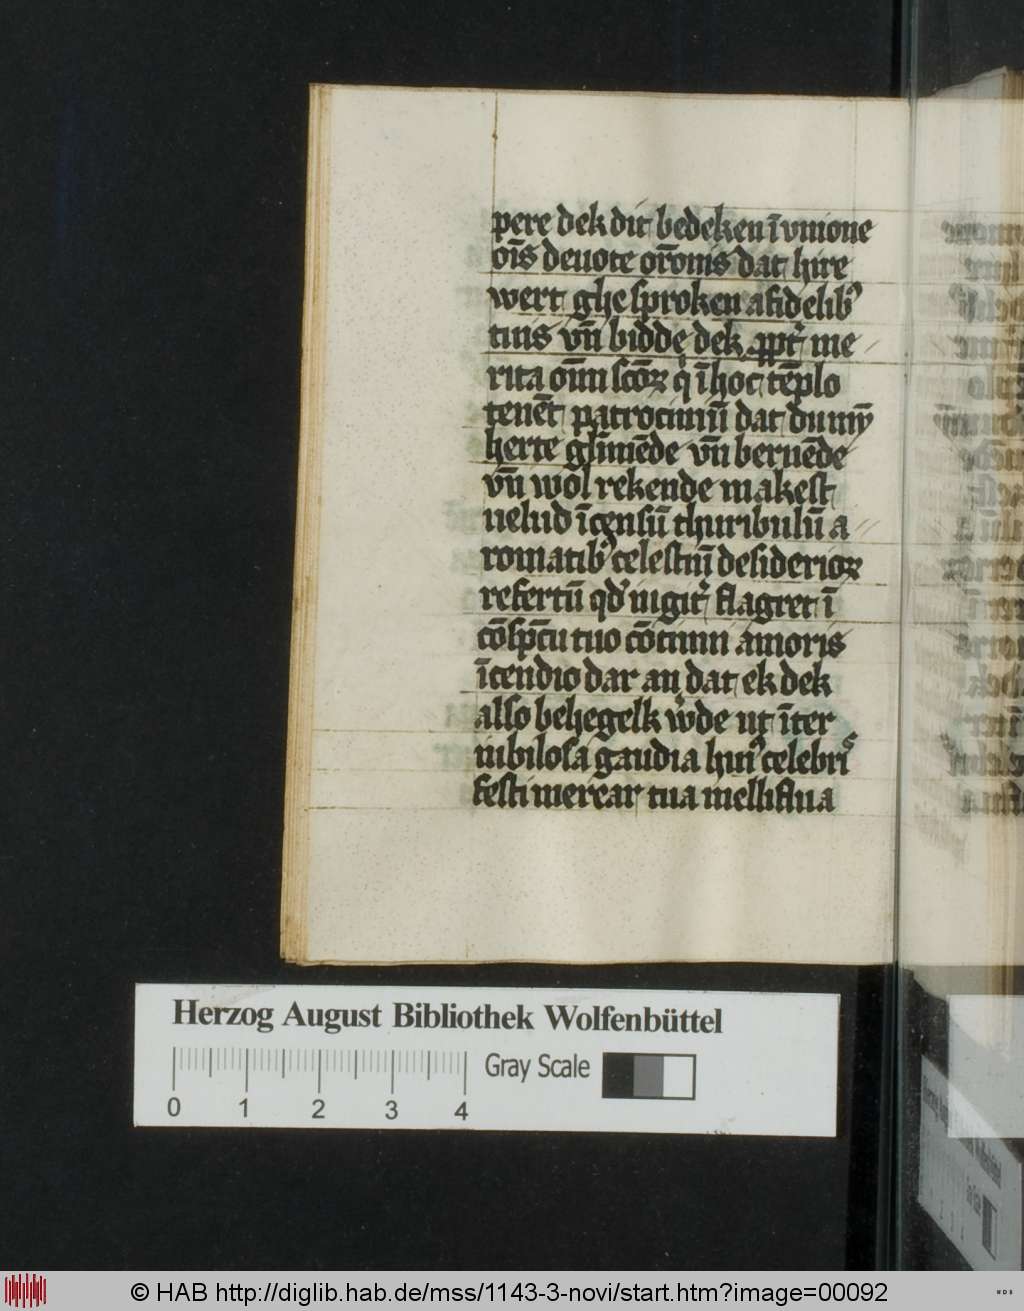 pere dek dit bedeken ī vnione
oīs deuote or̄onis dat hire
wert ghe sproken a fidelibꝰ
tuis vn̄ bidde dek ꝓpt̉ me
rita om̄i sc̄oꝝ q̉ ī hoc tēplo
tenēt patrociniū dat du mȳ
herte glīmēde vn̄ bernēde
vn̄ wol rekende makest
uelud īcensū thuribulū a
romatibꝰ celestiū desiderioꝝ
refertū qd̉ iugit̉ flagret ī
cōsp̄c̄u tuo cōtinui amoris
īcendio dar an dat ek dek
also behegelk w̉de ut īter
iubilosa gaudia huiꝰ celebris
festi merear tua melliflua
Herzog August Bibliothek Wolfenbüttel
Gray Scale
0 1 2 3 4
© HAB http://diglib.hab.de/mss/1143-3-novi/start.htm?image=00092